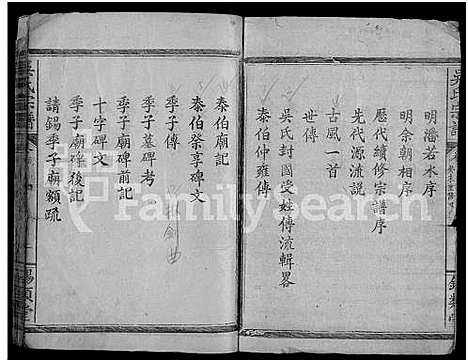 吳氏宗譜
明潘若水序
明佘朝相序
歷代續修宗譜序
先代源流說
古風一首
世傳
吳氏封國受姓傳流輯畧
泰伯仲雍傳
泰伯廟記
泰伯祭享碑文
季子傳
季子墓碑考
季子廟碑前記
十字碑文
季子廟碑後記
請錫季子廟額疏
FamilySearch